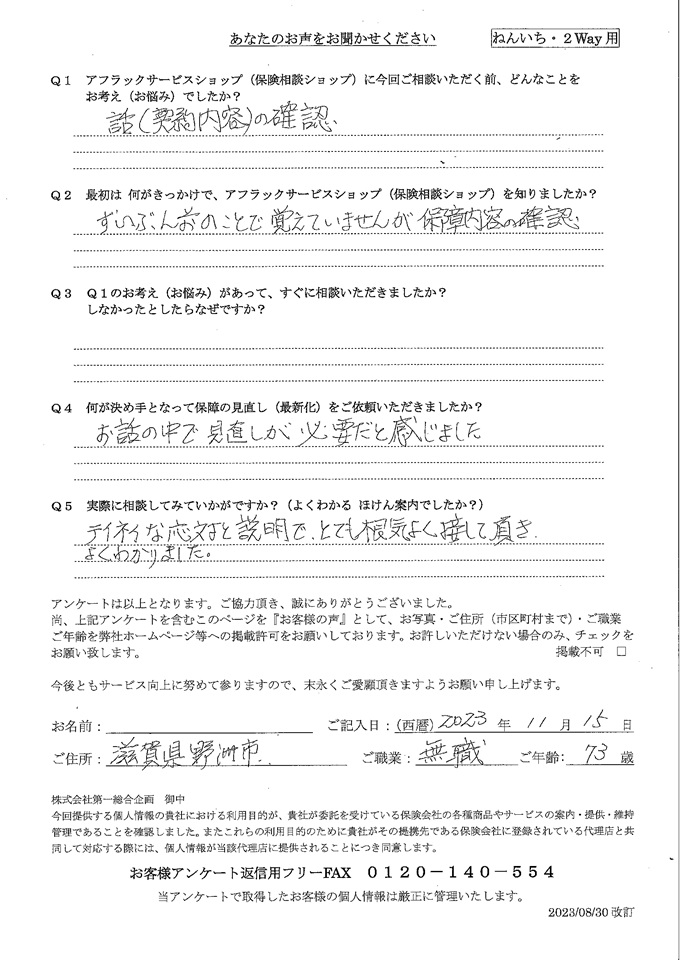 あなたのお声をお聞かせください
ねんいち・２Way用
Ｑ１　アフラックサービスショップ（保険相談ショップ）に今回ご相談いただく前、どんなことを
お考え（お悩み）でしたか？
話（契約内容）の確認、
Ｑ２　最初は 何がきっかけで、アフラックサービスショップ（保険相談ショップ）を知りましたか？
ずいぶん前のことで覚えていませんが 保障内容の確認、
Ｑ３　Ｑ１のお考え（お悩み）があって、すぐに相談いただきましたか？
しなかったとしたらなぜですか？
Ｑ４　何が決め手となって保障の見直し（最新化）をご依頼いただきましたか？
お話の中で 見直しが 必要だと感じました
Ｑ５　実際に相談してみていかがですか？（よくわかる ほけん案内でしたか？）
テイネイな応対と説明で、とても根気よく接して頂き、
よくわかりました。
アンケートは以上となります。ご協力頂き、誠にありがとうございました。
尚、上記アンケートを含むこのページを『お客様の声』として、お写真・ご住所（市区町村まで）・ご職業
ご年齢を弊社ホームページ等への掲載許可をお願いしております。お許しいただけない場合のみ、チェックを
お願い致します。
掲載不可　□
今後ともサービス向上に努めて参りますので、末永くご愛顧頂きますようお願い申し上げます。
お名前：　ご記入日：（西暦）2023 年 11 月 15 日
ご住所： 滋賀県野洲市　ご職業： 無職　ご年齢: 73 歳
株式会社第一総合企画　御中
今回提供する個人情報の貴社における利用目的が、貴社が委託を受けている保険会社の各種商品やサービスの案内・提供・維持
管理であることを確認しました。またこれらの利用目的のために貴社がその提携先である保険会社に登録されている代理店と共
同して対応する際には、個人情報が当該代理店に提供されることにつき同意します。
お客様アンケート返信用フリーFAX　０１２０－１４０－５５４
当アンケートで取得したお客様の個人情報は厳正に管理いたします。
2023/08/30 改訂